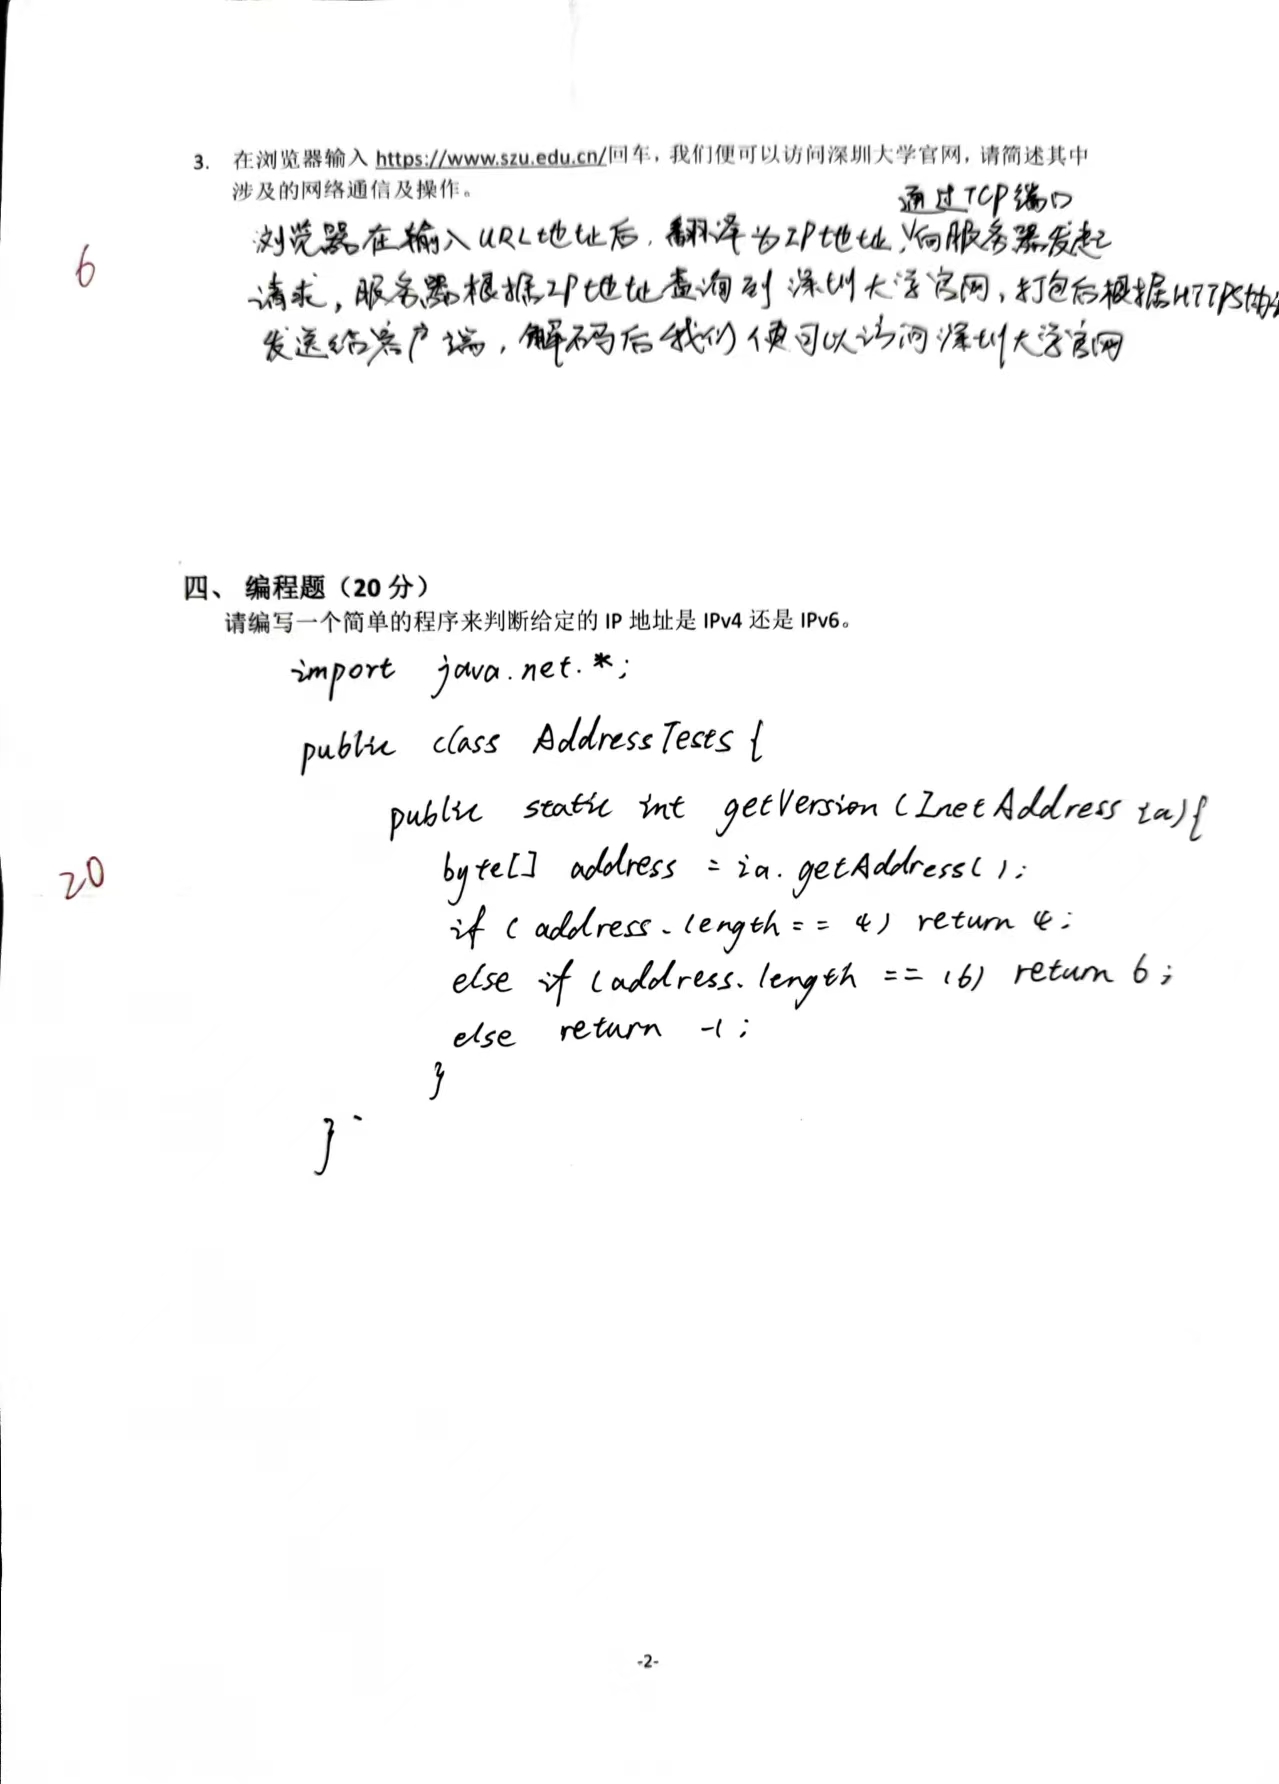 3. 在浏览器输入 https://www.szu.edu.cn/回车，我们便可以访问深圳大学官网，请简述其中
涉及的网络通信及操作。
通过TCP端口
浏览器在输入URL地址后，翻译为IP地址，向服务器发起
6
请求，服务器根据IP地址查询到深圳大学官网，打包后根据HTTPS协议
发送给客户端，解码后我们便可以访问深圳大学官网
四、 编程题（20 分）
请编写一个简单的程序来判断给定的 IP 地址是 IPv4 还是 IPv6。
import java.net.*;
public class AddressTests {
public static int getVersion (InetAddress ia){
20
byte[] address = ia.getAddress();
if (address.length == 4) return 4;
else if (address.length == 16) return 6;
else return -1;
}
}
-2-